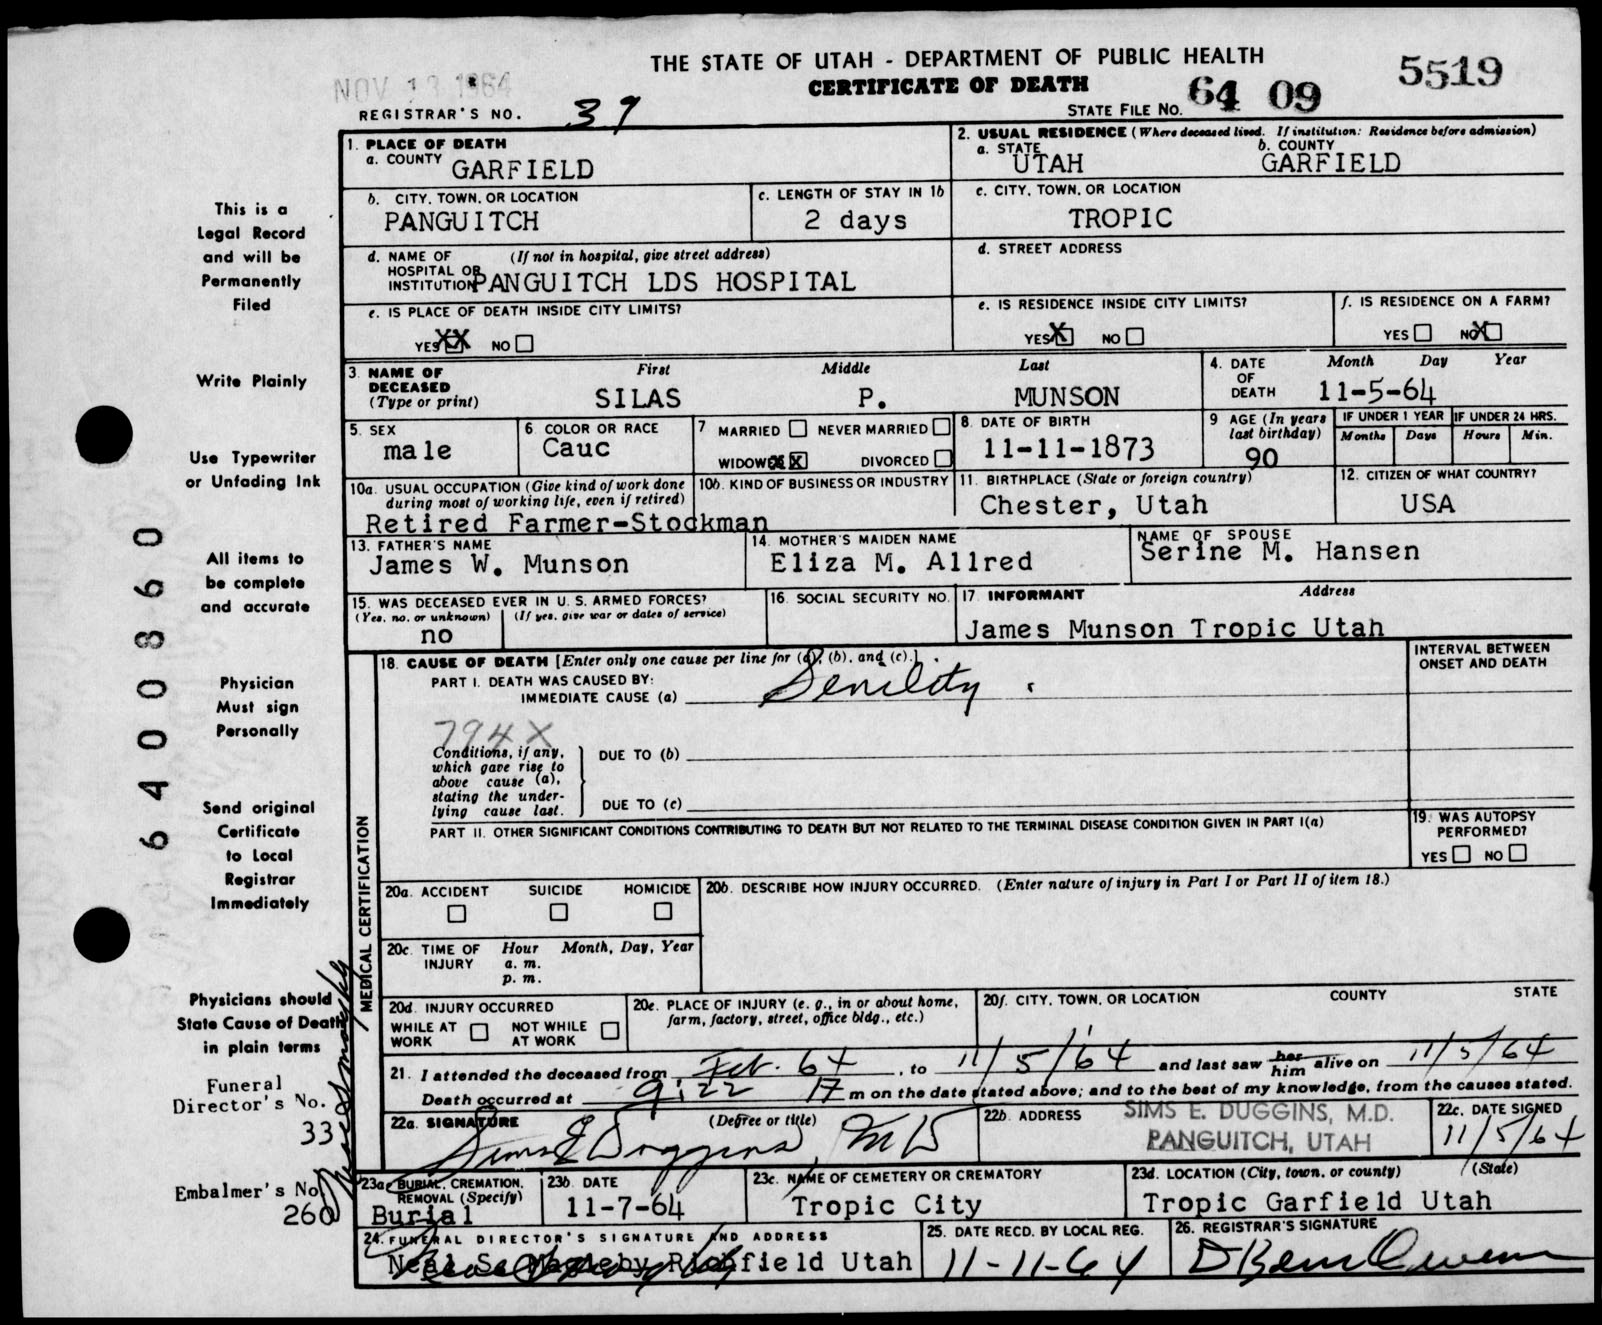 THE STATE OF UTAH - DEPARTMENT OF PUBLIC HEALTH
CERTIFICATE OF DEATH
5519
NOV 13 1964
REGISTRAR'S NO. 39
STATE FILE NO. 64 09
This is a
Legal Record
and will be
Permanently
Filed
Write Plainly
Use Typewriter
or Unfading Ink
All items to
be complete
and accurate
Physician
Must sign
Personally
Send original
Certificate
to Local
Registrar
Immediately
Physicians should
State Cause of Death
in plain terms
Funeral
Director's No.
33
Embalmer's No.
260
6400860
1. PLACE OF DEATH
a. COUNTY GARFIELD
2. USUAL RESIDENCE (Where deceased lived. If institution: Residence before admission)
a. STATE UTAH
b. COUNTY GARFIELD
b. CITY, TOWN, OR LOCATION
PANGUITCH
c. LENGTH OF STAY IN 1b
2 days
c. CITY, TOWN, OR LOCATION
TROPIC
d. NAME OF (If not in hospital, give street address)
HOSPITAL OR
INSTITUTION PANGUITCH LDS HOSPITAL
d. STREET ADDRESS
e. IS PLACE OF DEATH INSIDE CITY LIMITS?
YES XX NO
e. IS RESIDENCE INSIDE CITY LIMITS?
YES X NO
f. IS RESIDENCE ON A FARM?
YES NO X
3. NAME OF DECEASED (Type or print)
First Middle Last
SILAS P. MUNSON
4. DATE OF DEATH Month Day Year
11-5-64
5. SEX
male
6. COLOR OR RACE
Cauc
7 MARRIED NEVER MARRIED
WIDOWED X DIVORCED
8. DATE OF BIRTH
11-11-1873
9 AGE (In years last birthday)
90
IF UNDER 1 YEAR IF UNDER 24 HRS.
Months Days Hours Min.
10a. USUAL OCCUPATION (Give kind of work done
during most of working life, even if retired)
Retired Farmer-Stockman
10b. KIND OF BUSINESS OR INDUSTRY
11. BIRTHPLACE (State or foreign country)
Chester, Utah
12. CITIZEN OF WHAT COUNTRY?
USA
13. FATHER'S NAME
James W. Munson
14. MOTHER'S MAIDEN NAME
Eliza M. Allred
NAME OF SPOUSE
Serine M. Hansen
15. WAS DECEASED EVER IN U. S. ARMED FORCES?
(Yes, no, or unknown) (If yes, give war or dates of service)
no
16. SOCIAL SECURITY NO.
17 INFORMANT Address
James Munson Tropic Utah
MEDICAL CERTIFICATION
18. CAUSE OF DEATH [Enter only one cause per line for (a), (b), and (c).]
INTERVAL BETWEEN
ONSET AND DEATH
PART I. DEATH WAS CAUSED BY:
IMMEDIATE CAUSE (a) Senility
794X
Conditions, if any,
which gave rise to
above cause (a),
stating the under-
lying cause last.
DUE TO (b)
DUE TO (c)
PART II. OTHER SIGNIFICANT CONDITIONS CONTRIBUTING TO DEATH BUT NOT RELATED TO THE TERMINAL DISEASE CONDITION GIVEN IN PART I(a)
19. WAS AUTOPSY
PERFORMED?
YES NO
20a. ACCIDENT SUICIDE HOMICIDE
20b. DESCRIBE HOW INJURY OCCURRED. (Enter nature of injury in Part I or Part II of item 18.)
20c. TIME OF INJURY Hour Month, Day, Year
a. m.
p. m.
20d. INJURY OCCURRED
WHILE AT WORK NOT WHILE AT WORK
20e. PLACE OF INJURY (e. g., in or about home,
farm, factory, street, office bldg., etc.)
20f. CITY, TOWN, OR LOCATION COUNTY STATE
21. I attended the deceased from Feb. 64, to 11/5/64 and last saw her him alive on 11/5/64
Death occurred at 9:22 m on the date stated above; and to the best of my knowledge, from the causes stated.
22a. SIGNATURE (Degree or title)
Sims E Duggins, MD
22b. ADDRESS
SIMS E. DUGGINS, M.D.
PANGUITCH, UTAH
22c. DATE SIGNED
11/5/64
23a. BURIAL, CREMATION,
REMOVAL (Specify)
Burial
23b. DATE
11-7-64
23c. NAME OF CEMETERY OR CREMATORY
Tropic City
23d. LOCATION (City, town, or county) (State)
Tropic Garfield Utah
24. FUNERAL DIRECTOR'S SIGNATURE AND ADDRESS
Neal S. Magleby Richfield Utah
25. DATE RECD. BY LOCAL REG.
11-11-64
26. REGISTRAR'S SIGNATURE